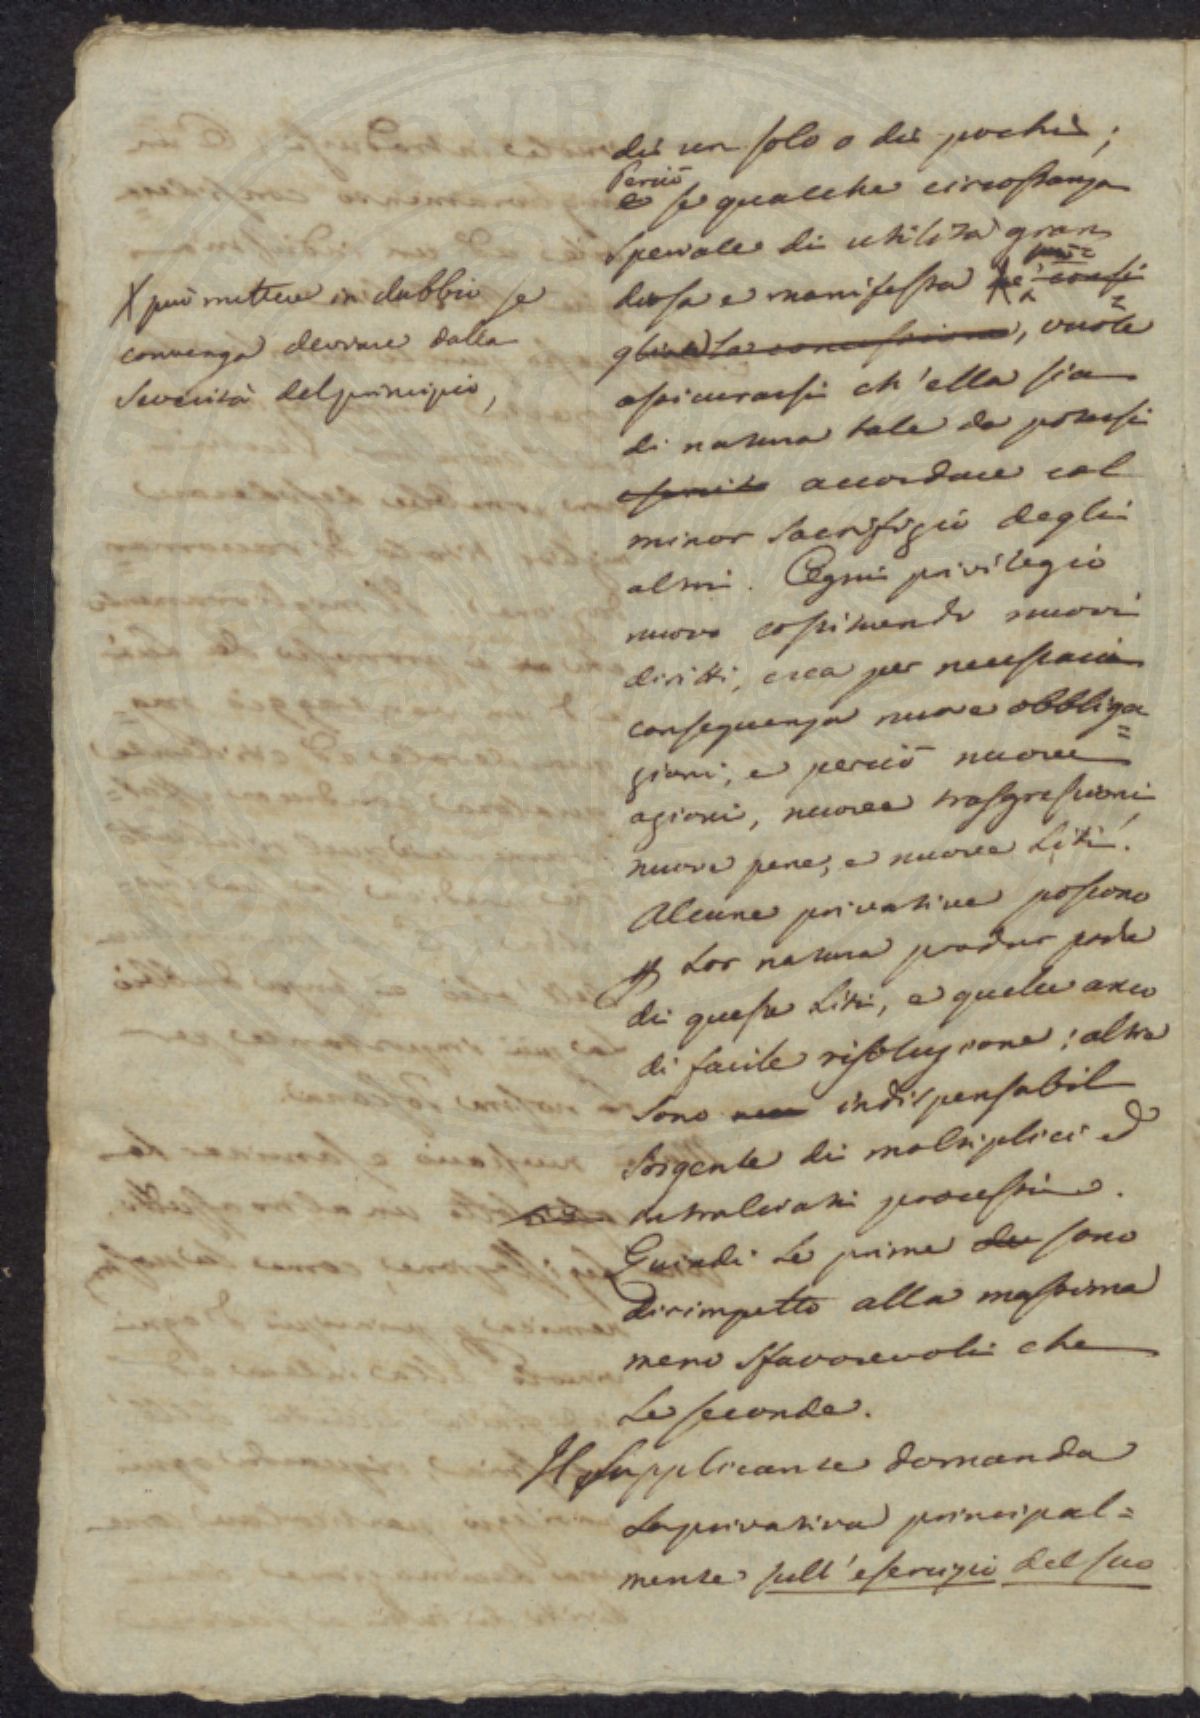 di un solo o di pochi;
Perciò
e se qualche circostanza
speciale di utilità gran
diosa e manifesta ne consi
glia la concessione, vuole
assicurarsi ch'ella sia
di natura tale da potersi
accordare col
minor sacrifizio degli
altri. Ogni privilegio
nuovo costituendo nuovi
diritti, crea per necessaria
conseguenza nuove obbliga=
zioni, e perciò nuove
azioni, nuove trasgressioni,
nuove pene, e nuove Liti.
Alcune privative possono
Lor natura produr poche
di queste Liti, e quelle anco
di facile risoluzione; altre
sono indispensabil
sorgente di moltiplici ed
intralciati processi.
Quindi le prime sono
dirimpetto alla massima
meno sfavorevoli che
le seconde.
Il supplicante domanda
la privativa principal=
mente sull'esercizio del suo
X può mettere in dubbio se
convenga deviare dalla
severità del principio,